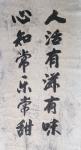 人活有洋有味
心知常乐常甜